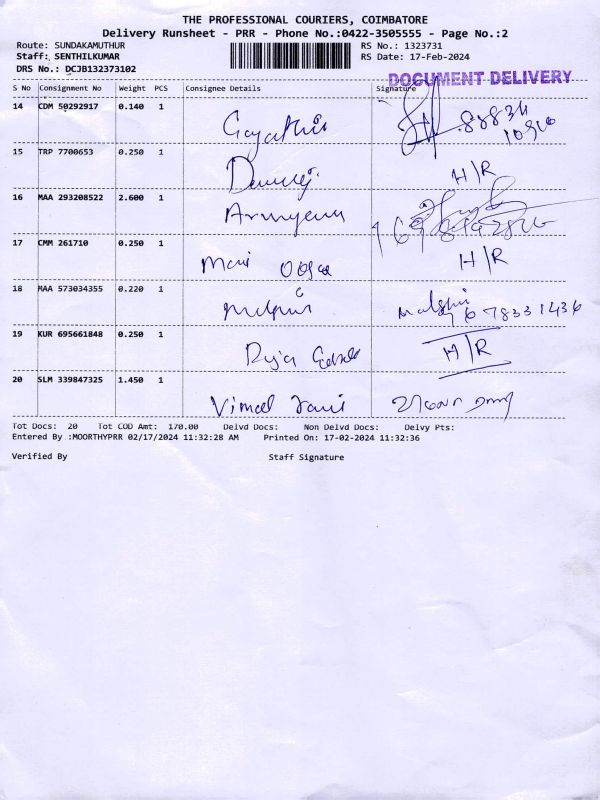 THE PROFESSIONAL COURIERS, COIMBATORE
Delivery Runsheet - PRR - Phone No.:0422-3505555 - Page No.:2
Route: SUNDAKAMUTHUR RS No.: 1323731
Staff: SENTHILKUMAR RS Date: 17-Feb-2024
DRS No.: DCJB132373102
DOCUMENT DELIVERY
S No Consignment No Weight PCS Consignee Details Signature
14 CDM 50292917 0.140 1 Gayathri
15 TRP 7700653 0.250 1 H/R
16 MAA 293208522 2.600 1
17 CMM 261710 0.250 1 H/R
18 MAA 573034355 0.220 1
19 KUR 695661848 0.250 1 H/R
20 SLM 339847325 1.450 1 Vimal
Tot Docs: 20 Tot COD Amt: 170.00 Delvd Docs: Non Delvd Docs: Delvy Pts:
Entered By :MOORTHYPRR 02/17/2024 11:32:28 AM Printed On: 17-02-2024 11:32:36
Verified By Staff Signature